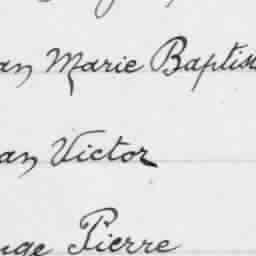 an Marie Baptis
an Victor
nge Pierre